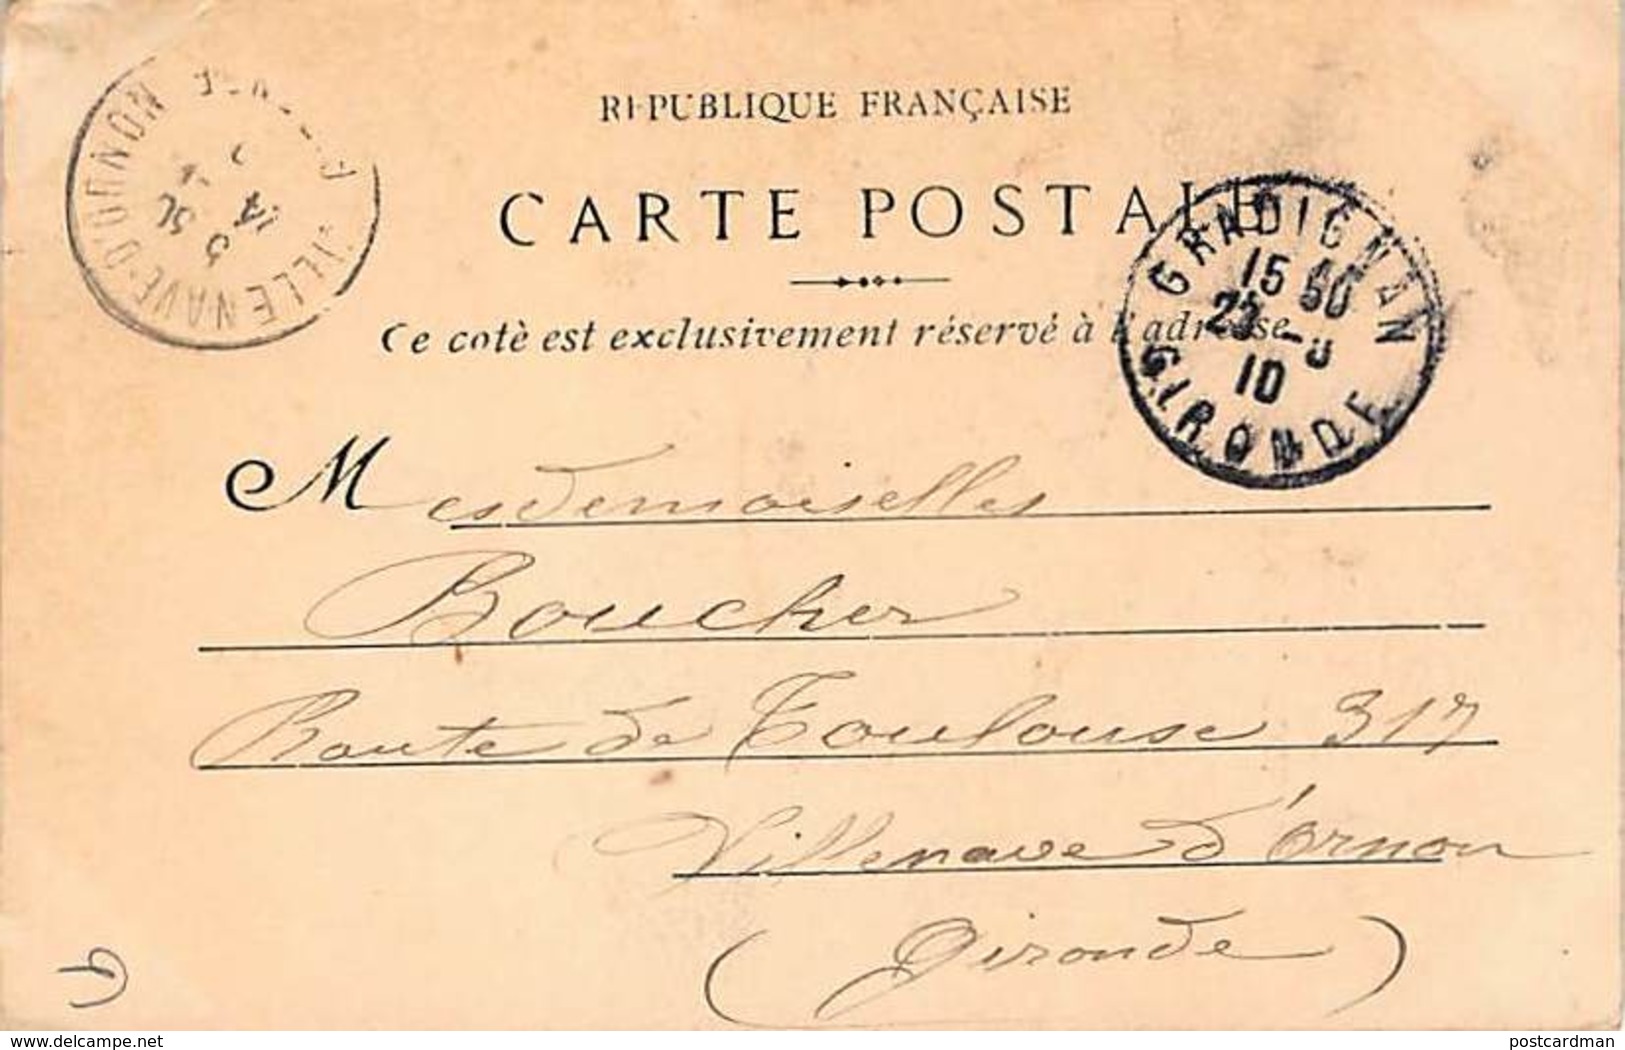 REPUBLIQUE FRANÇAISE
CARTE POSTALE
Ce coté est exclusivement réservé à l'adresse
GRADIGNAN
15 50
10
GIRONDE
VILLENAVE-D'ORNON
Mesdemoiselles
Boucher
Route de Toulouse 317
Villenave d'Ornon
(Gironde)
www.delcampe.net
postcardman